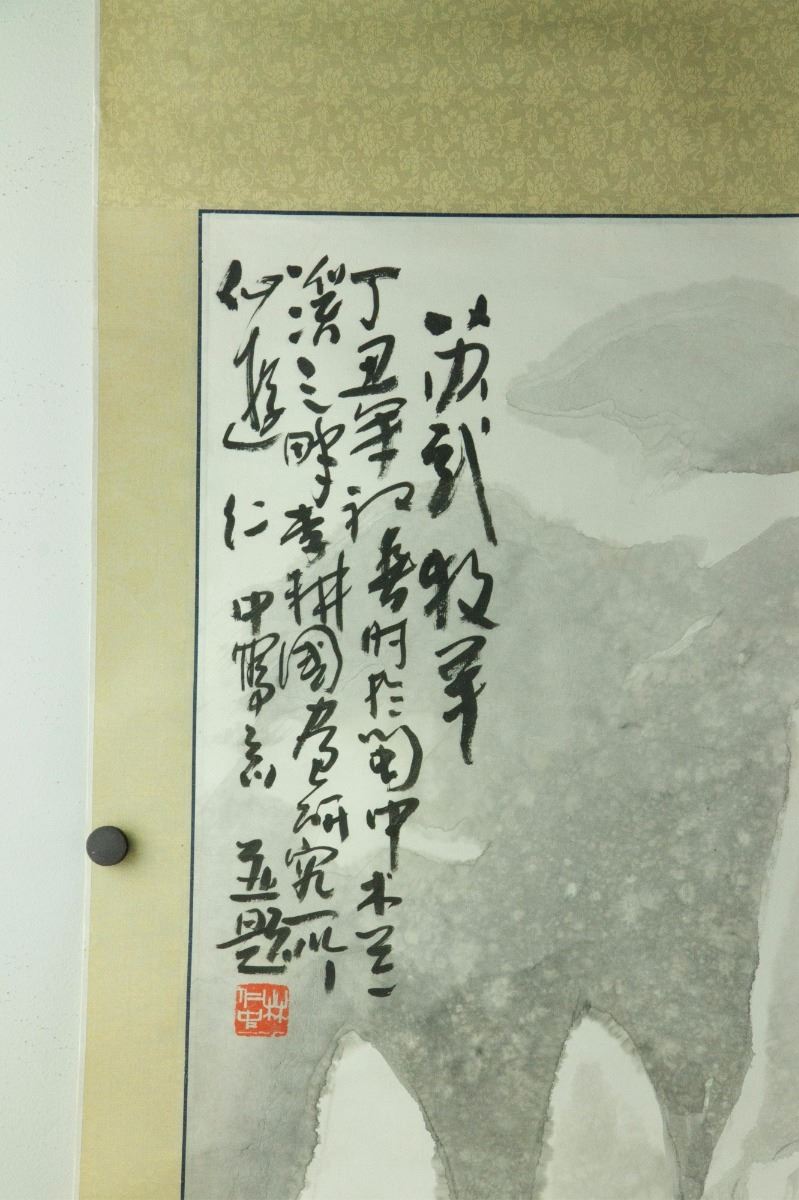 苏武牧羊
丁丑年初春时于闽中木兰
溪之畔李耕国画研究所
仙游仁中写意并题
林仁中